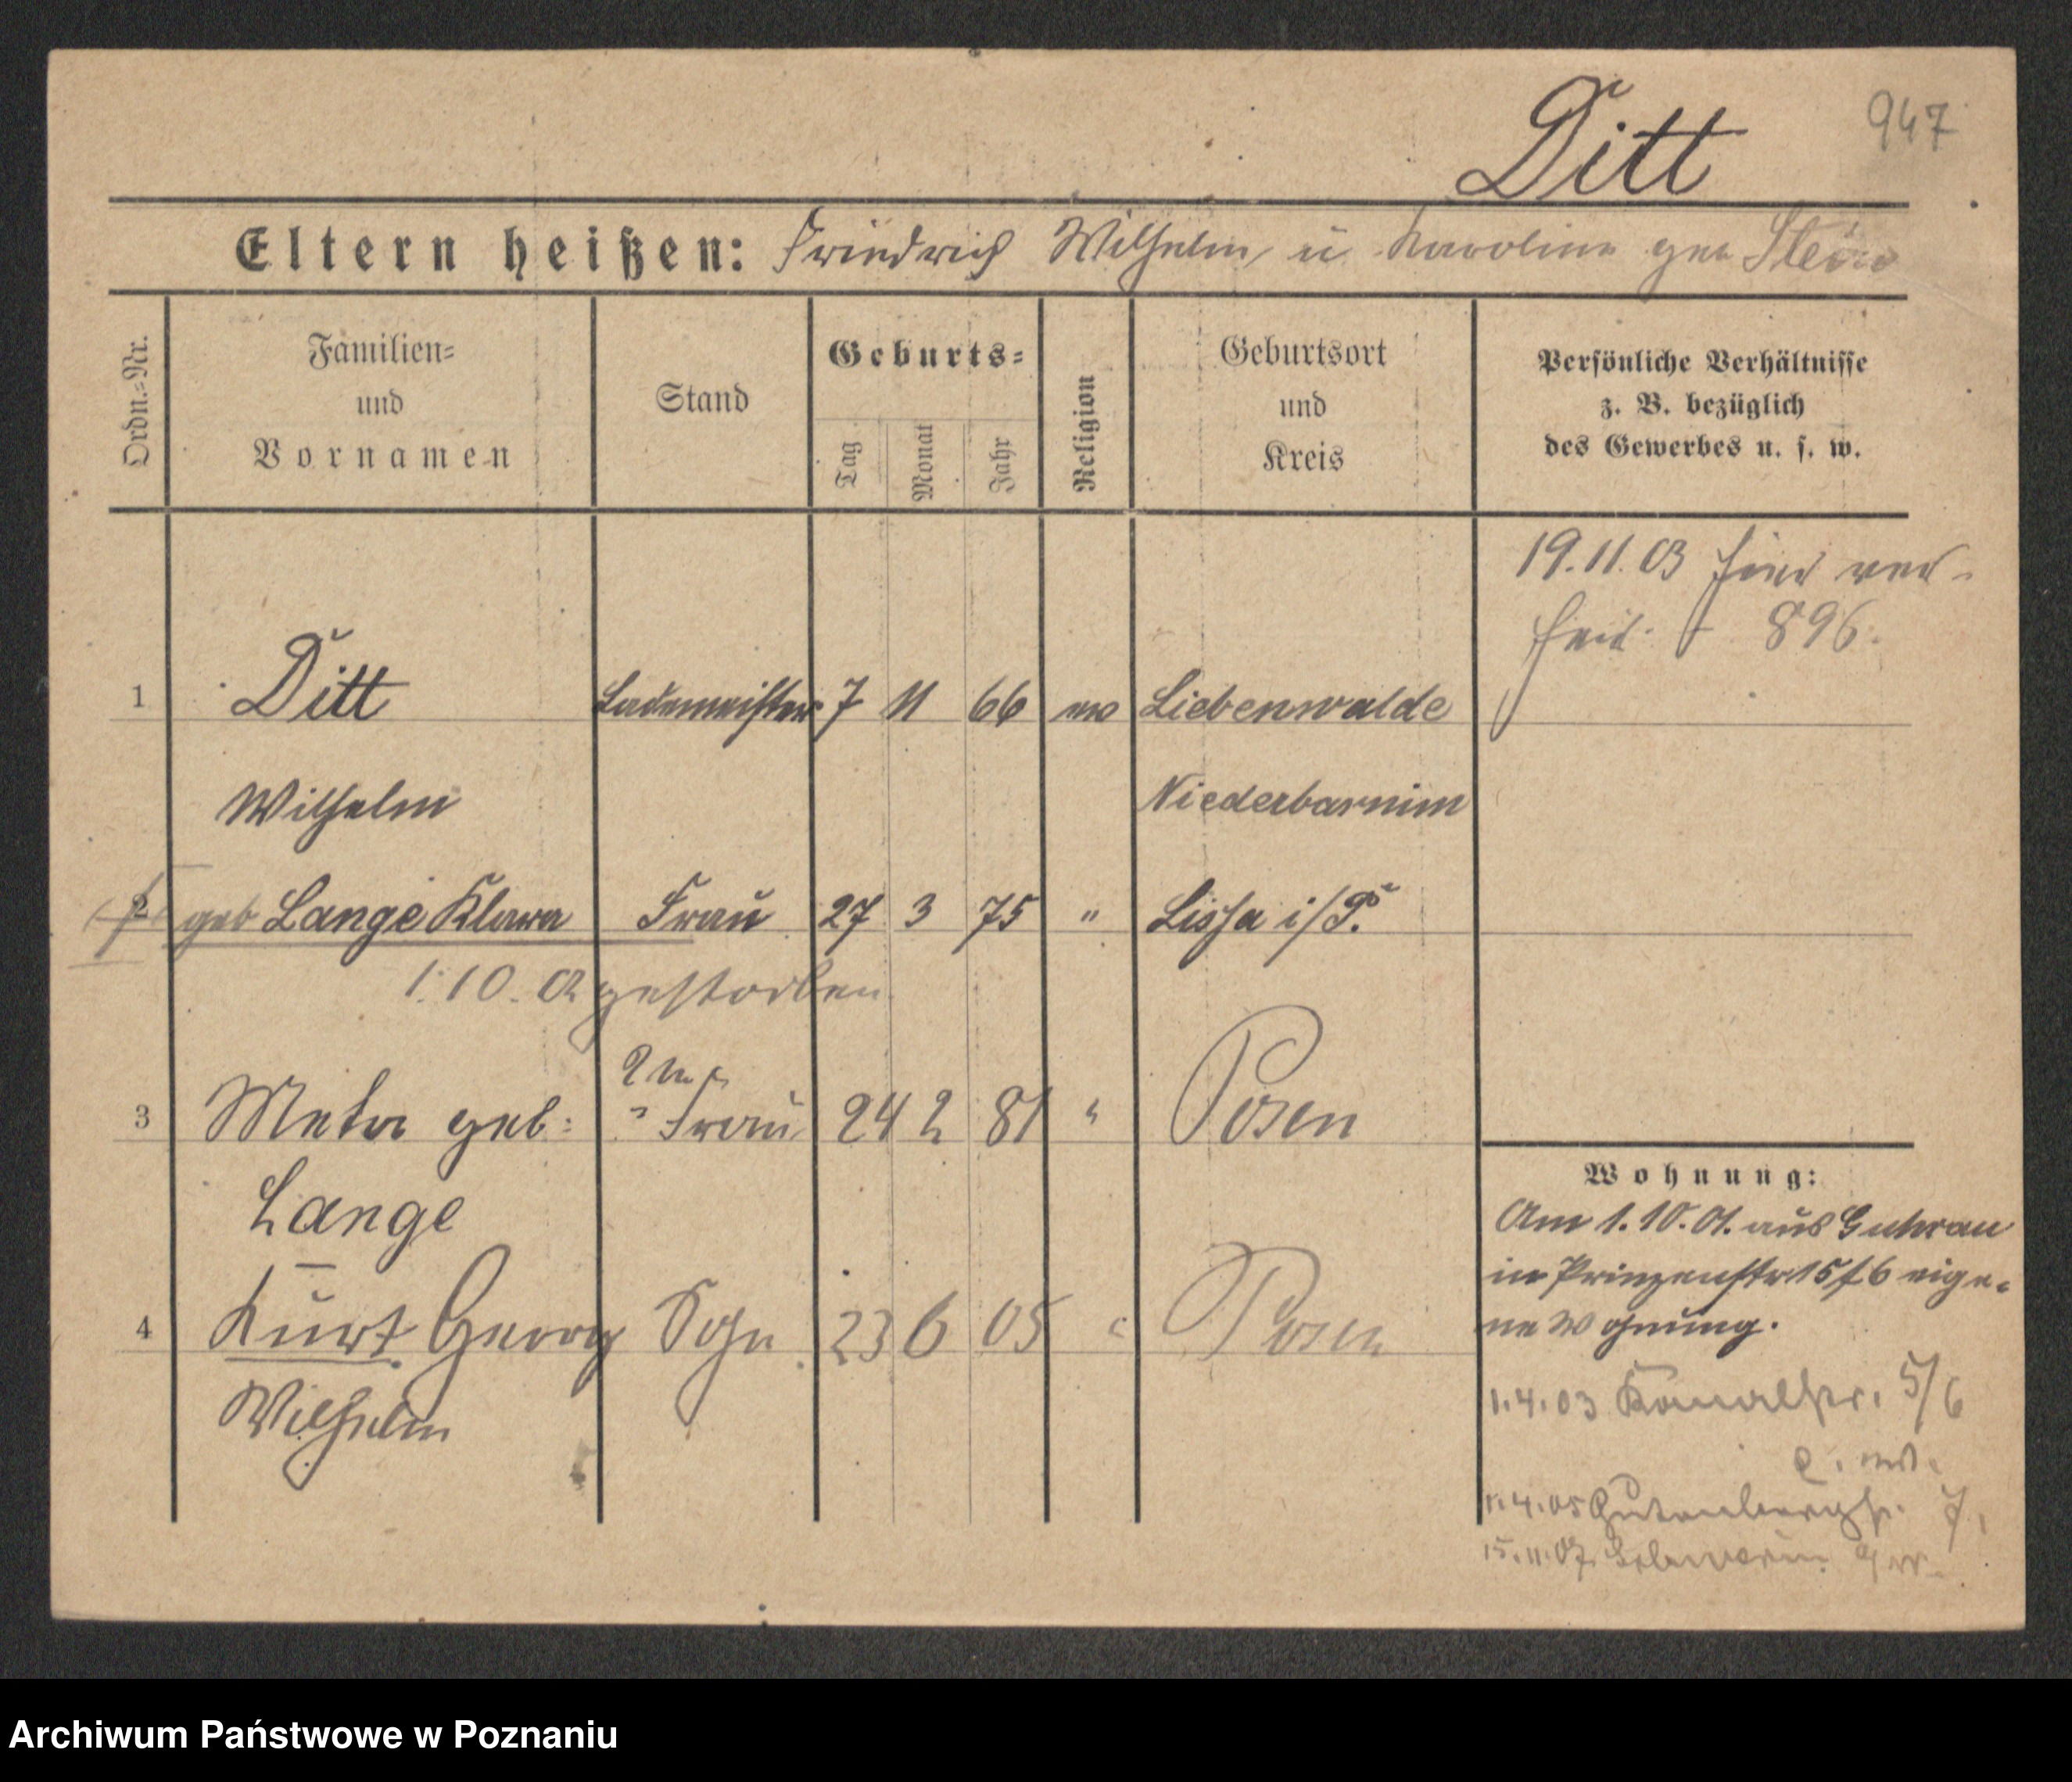 Ditt 947
Eltern heißen: Friedrich Wilhelm u Karoline geb
Ordn.=Nr. Familien= und Vornamen Stand Geburts= Tag Monat Jahr Religion Geburtsort und Kreis Persönliche Verhältnisse z. B. bezüglich des Gewerbes u. s. w.
19.11.03
896.
1 Ditt Lademeister 7 11 66 ev Liebenwalde
Wilhelm Niederbarnim
2 geb Lange Klara Frau 27 3 75 " Lissa i/P.
1.10. gestorben
3 Meta geb: Frau 24 2 81 " Posen
Lange
4 Kurt Georg Sohn 23 6 05 " Posen
Wilhelm
Wohnung:
Am 1.10.01. aus Guhrau
in Prinzenstr 15 f 6 eige-
ne Wohnung.
1.4.03 Kanalstr. 5/6
1.4.05 Gutenbergstr. 7,
15.11.07
Archiwum Państwowe w Poznaniu